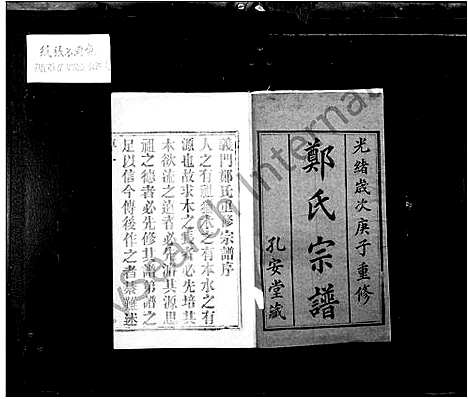 光緒歲次庚子重修
鄭氏宗譜
孔安堂藏
義門鄭氏重修宗譜序
人之有祖猶木之有本水之有
源也故求木之茂者必先培其
本欲流之遠者必先濬其源思
祖之德者必先修其譜第譜之
足以信今傳後作之者綦難述